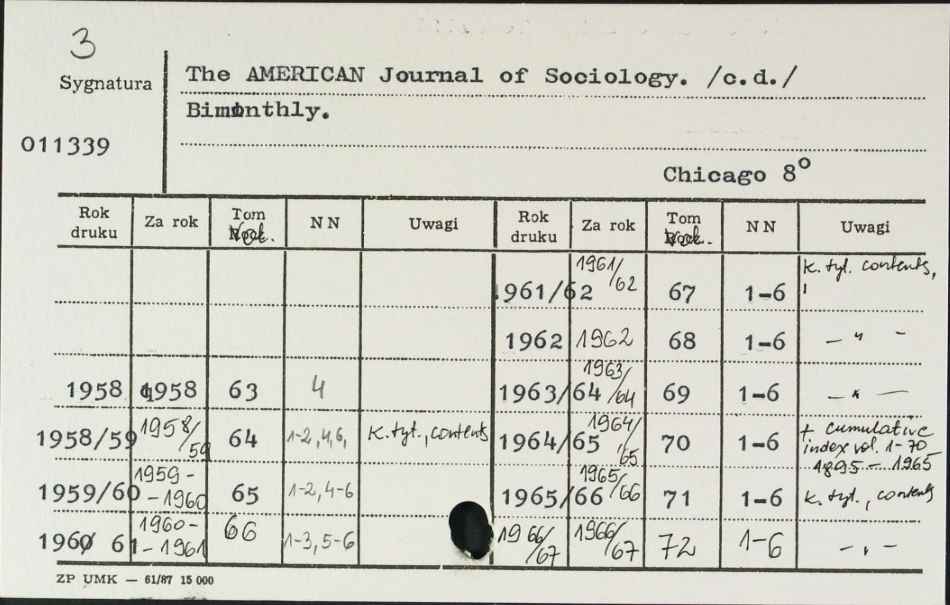 3
Sygnatura
The AMERICAN Journal of Sociology. /c.d./
Bimonthly.
011339
Chicago 8°
Rok druku Za rok Tom NN Uwagi Rok druku Za rok Tom NN Uwagi
1961/62 1961/62 67 1-6 k. tyt. contents,
1962 1962 68 1-6 — " —
1958 1958 63 4 1963/64 1963/64 69 1-6 — " —
1958/59 1958/59 64 1-2,4,6, k. tyt., contents 1964/65 1964/65 70 1-6 + cumulative index vol. 1-70 1895 – 1965
1959/60 1959-1960 65 1-2,4-6 1965/66 1965/66 71 1-6 k. tyt., contents
1960 61 1960-1961 66 1-3, 5-6 1966/67 1966/67 72 1-6 — " —
ZP UMK — 61/87 15 000